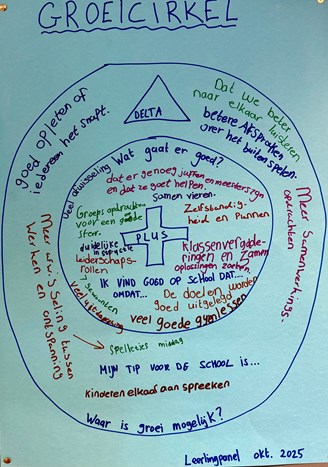 GROEICIRKEL
goed opleten of
iedereen het snapt.
DELTA
Dat we beter
naar elkaar luisteren
betere Afspraken
over het buitenspelen.
Meer Samenwerkings
opdrachten
Meer afwisseling tussen
Werken en ontspanning
Wat gaat er goed?
Veel afwisseling
dat er genoeg juffen en meesters zijn
en dat ze goet helpen.
Samen vieren.
Groeps opdrachten
voor een goede
sfeer.
Zelfstandig-
heid en Plannen
duidelijke
leiderschaps-
rollen
PLUS
Klassenvergade-
ringen en Zamen
oplossingen zoeken.
IK VIND GOED OP SCHOOL DAT...
OMDAT...
De doelen worden
goed uitgelegd
veel goede gymlessen
Spelletjes middag
MIJN TIP VOOR DE SCHOOL IS...
Kinderen elkaar aanspreeken
Waar is groei mogelijk?
Leerlingpanel okt. 2025